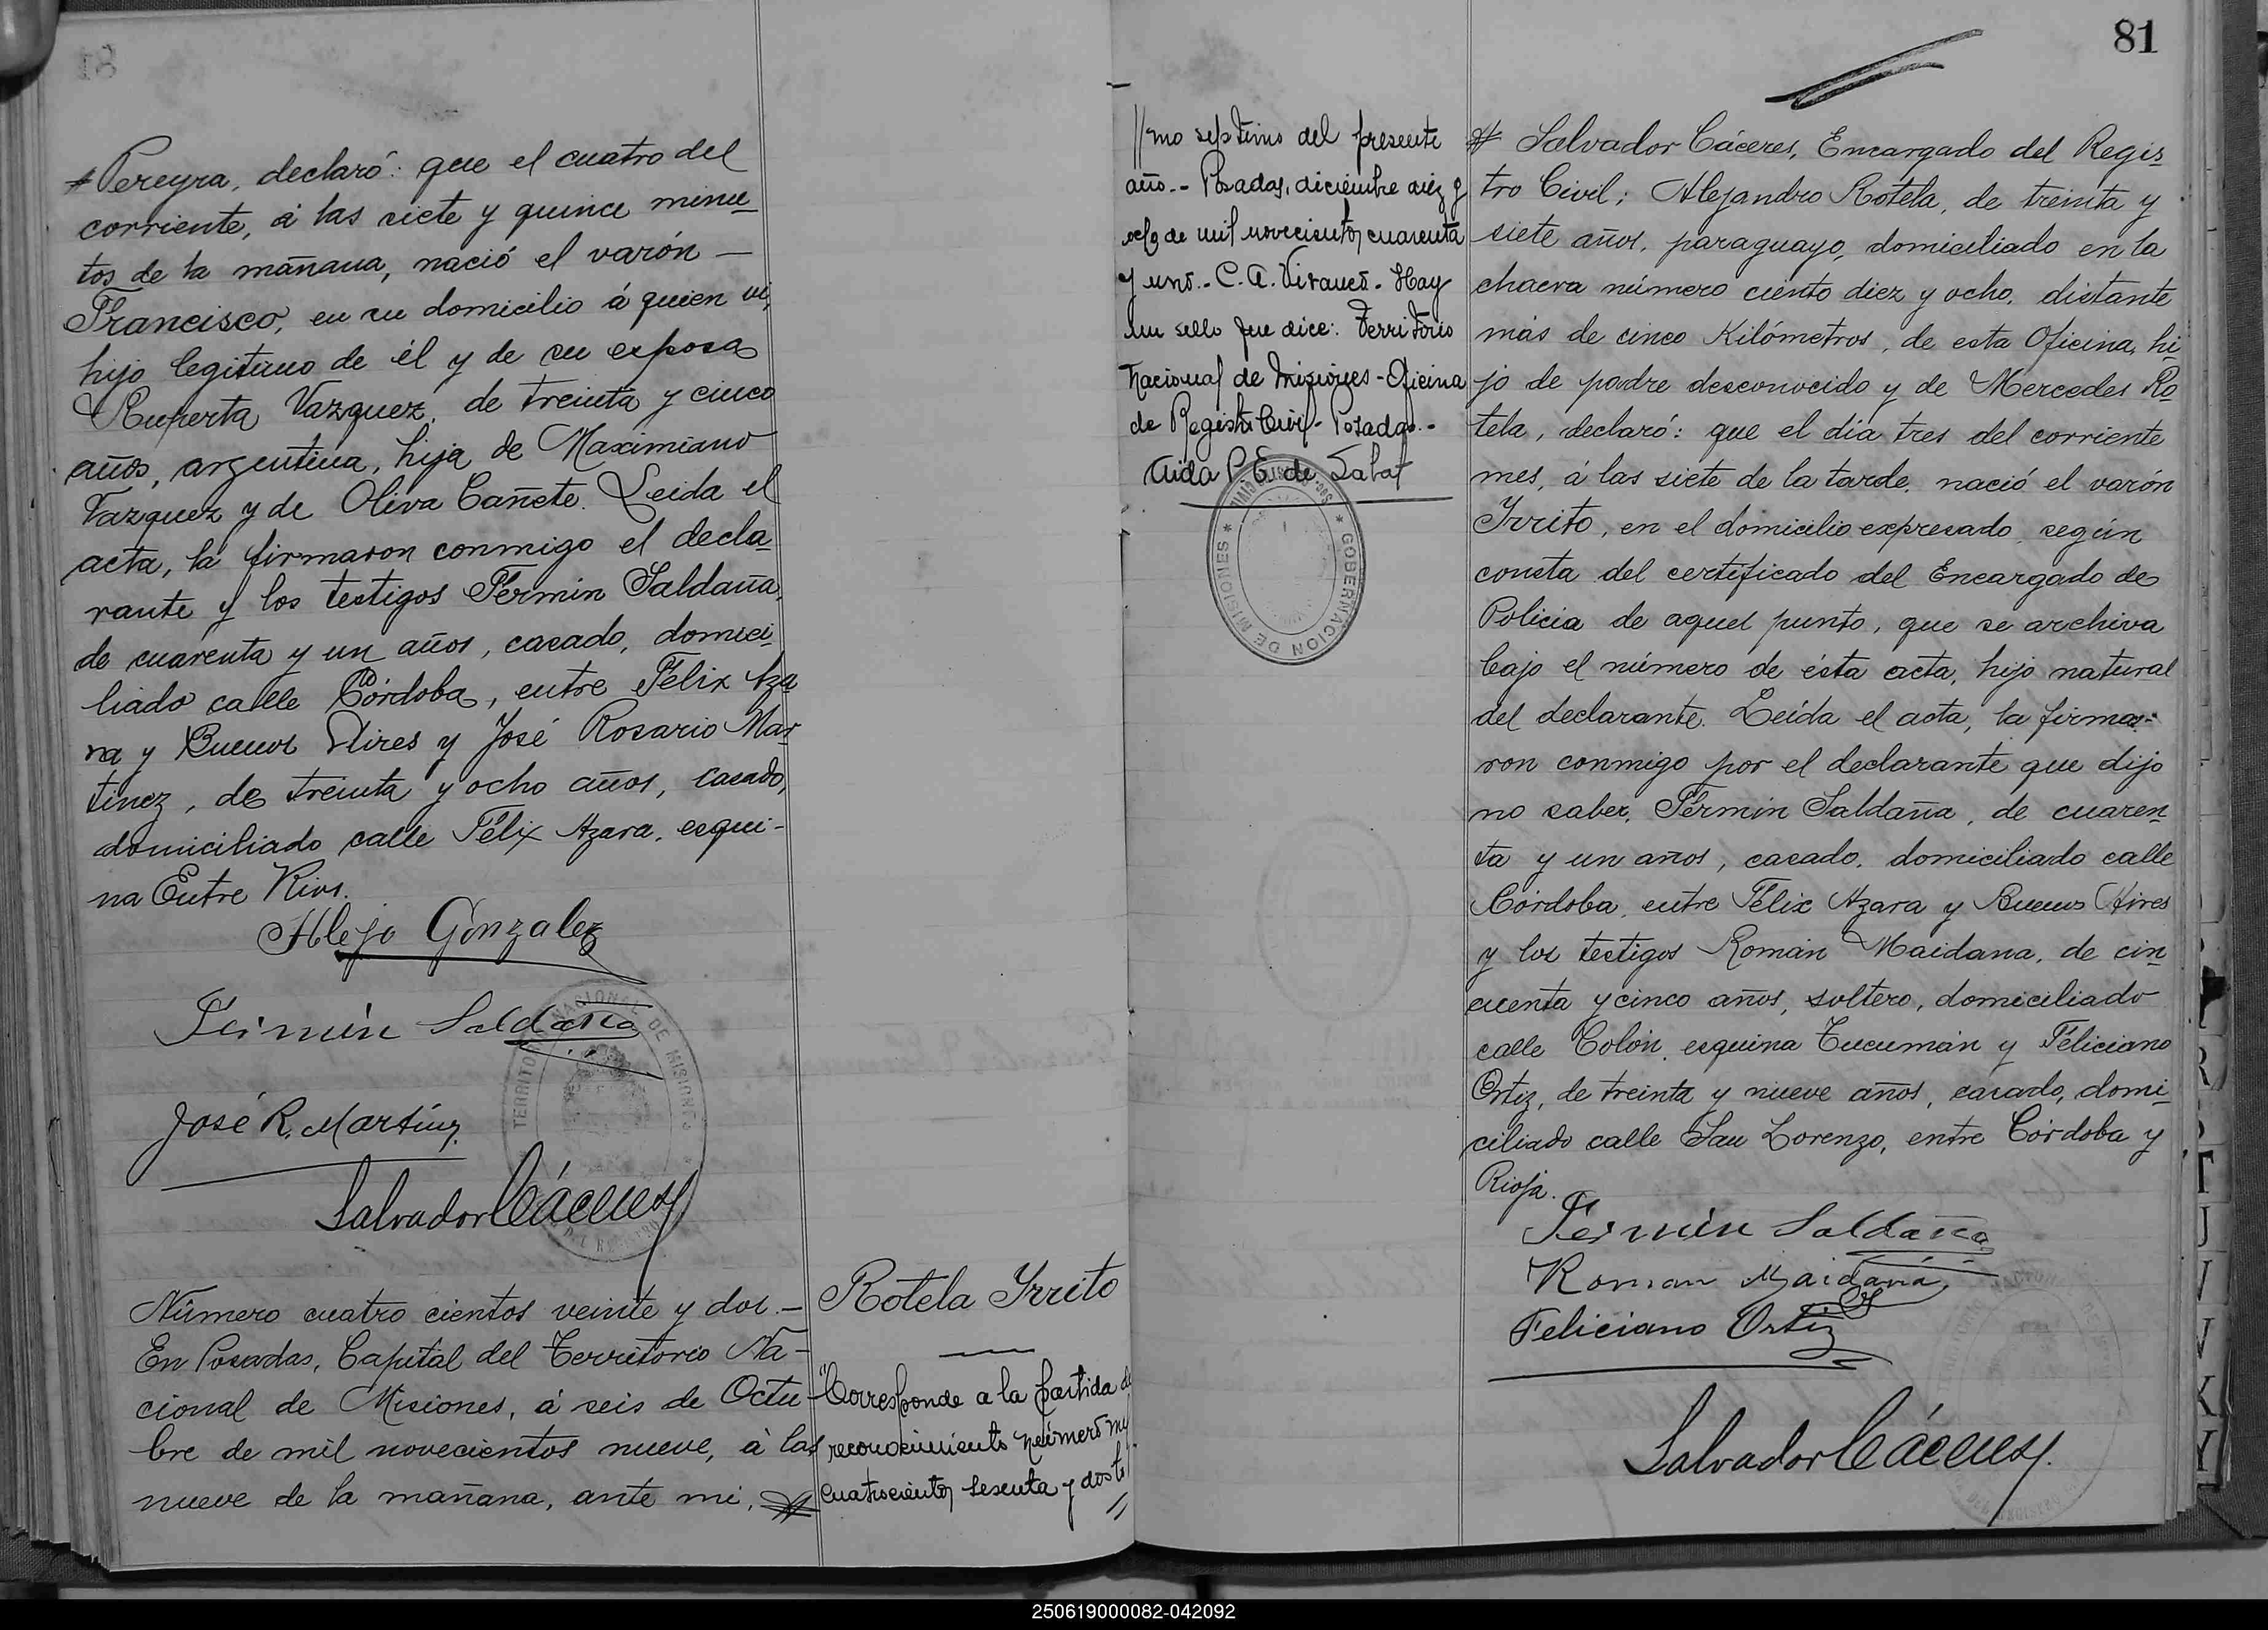 # Pereyra, declaró: que el cuatro del
corriente, á las siete y quince minu-
tos de la mañana, nació el varón —
Francisco, en su domicilio á quien vi,
hijo legitimo de él y de su esposa
Ruperta Vazquez, de treinta y cinco
años, argentina, hija de Maximiano
Vazquez y de Oliva Cañete. Leida el
acta, la firmaron conmigo el decla-
rante y los testigos Fermin Saldaña,
de cuarenta y un años, casado, domici-
liado calle Córdoba, entre Félix Aza-
ra y Buenos Aires y José Rosario Mar-
tinez, de treinta y ocho años, casado,
domiciliado calle Félix Azara, esqui-
na Entre Rios.
Alejo Gonzalez
Fermin Saldaña
TERRITORIO NACIONAL DE MISIONES
José R. Martinez
Salvador Cáceres
Número cuatro cientos veinte y dos.—
En Posadas, Capital del Territorio Na-
cional de Misiones, á seis de Octu-
bre de mil novecientos nueve, á las
nueve de la mañana, ante mi, #
Rotela Irrito
"Corresponde a la partida de
reconocimiento número mil
cuatrocientos sesenta y dos to
//
81
//mo septimo del presente
año.- Posadas, diciembre diez y
ocho de mil novecientos cuarenta
y uno.- C. A. Vivanco - Hay
un sello que dice: Territorio
Nacional de Misiones - Oficina
de Registro Civil - Posadas.-
Aida P. E. de Sabat
GOBERNACION DE MISIONES
# Salvador Cáceres, Encargado del Regis-
tro Civil; Alejandro Rotela, de treinta y
siete años, paraguayo, domiciliado en la
chacra número ciento diez y ocho, distante
más de cinco Kilómetros, de esta Oficina, hi-
jo de padre desconocido y de Mercedes Ro-
tela, declaró: que el dia tres del corriente
mes, á las siete de la tarde, nació el varón
Irrito, en el domicilio expresado, según
consta del certificado del Encargado de
Policia de aquel punto, que se archiva
bajo el número de ésta acta, hijo natural
del declarante. Leída el acta, la firma-
ron conmigo por el declarante que dijo
no saber, Fermin Saldaña, de cuaren-
ta y un años, casado, domiciliado calle
Córdoba, entre Félix Azara y Buenos Aires
y los testigos Román Maidana, de cin-
cuenta y cinco años, soltero, domiciliado
calle Colón, esquina Tucumán y Féliciano
Ortiz, de treinta y nueve años, casado, domi-
ciliado calle San Lorenzo, entre Córdoba y
Rioja.
Fermin Saldaña
Roman Maidana
Feliciano Ortiz
Salvador Cáceres.
250619000082-042092